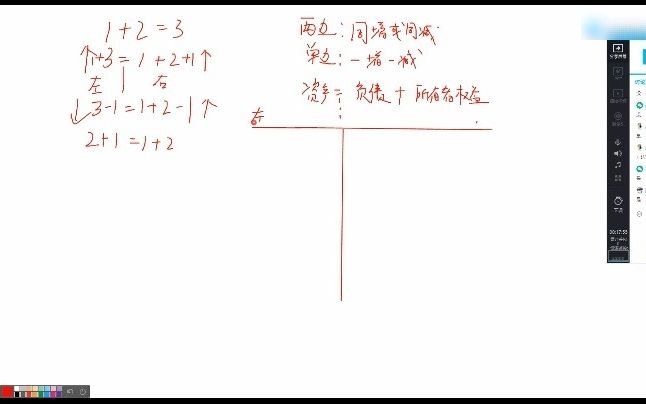 1+2=3
↑1+3=1+2+1↑
左 | 右
↓3-1=1+2-1↑
2+1=1+2
两边:同增或同减
单边:一增一减
资产=负债+所有者权益